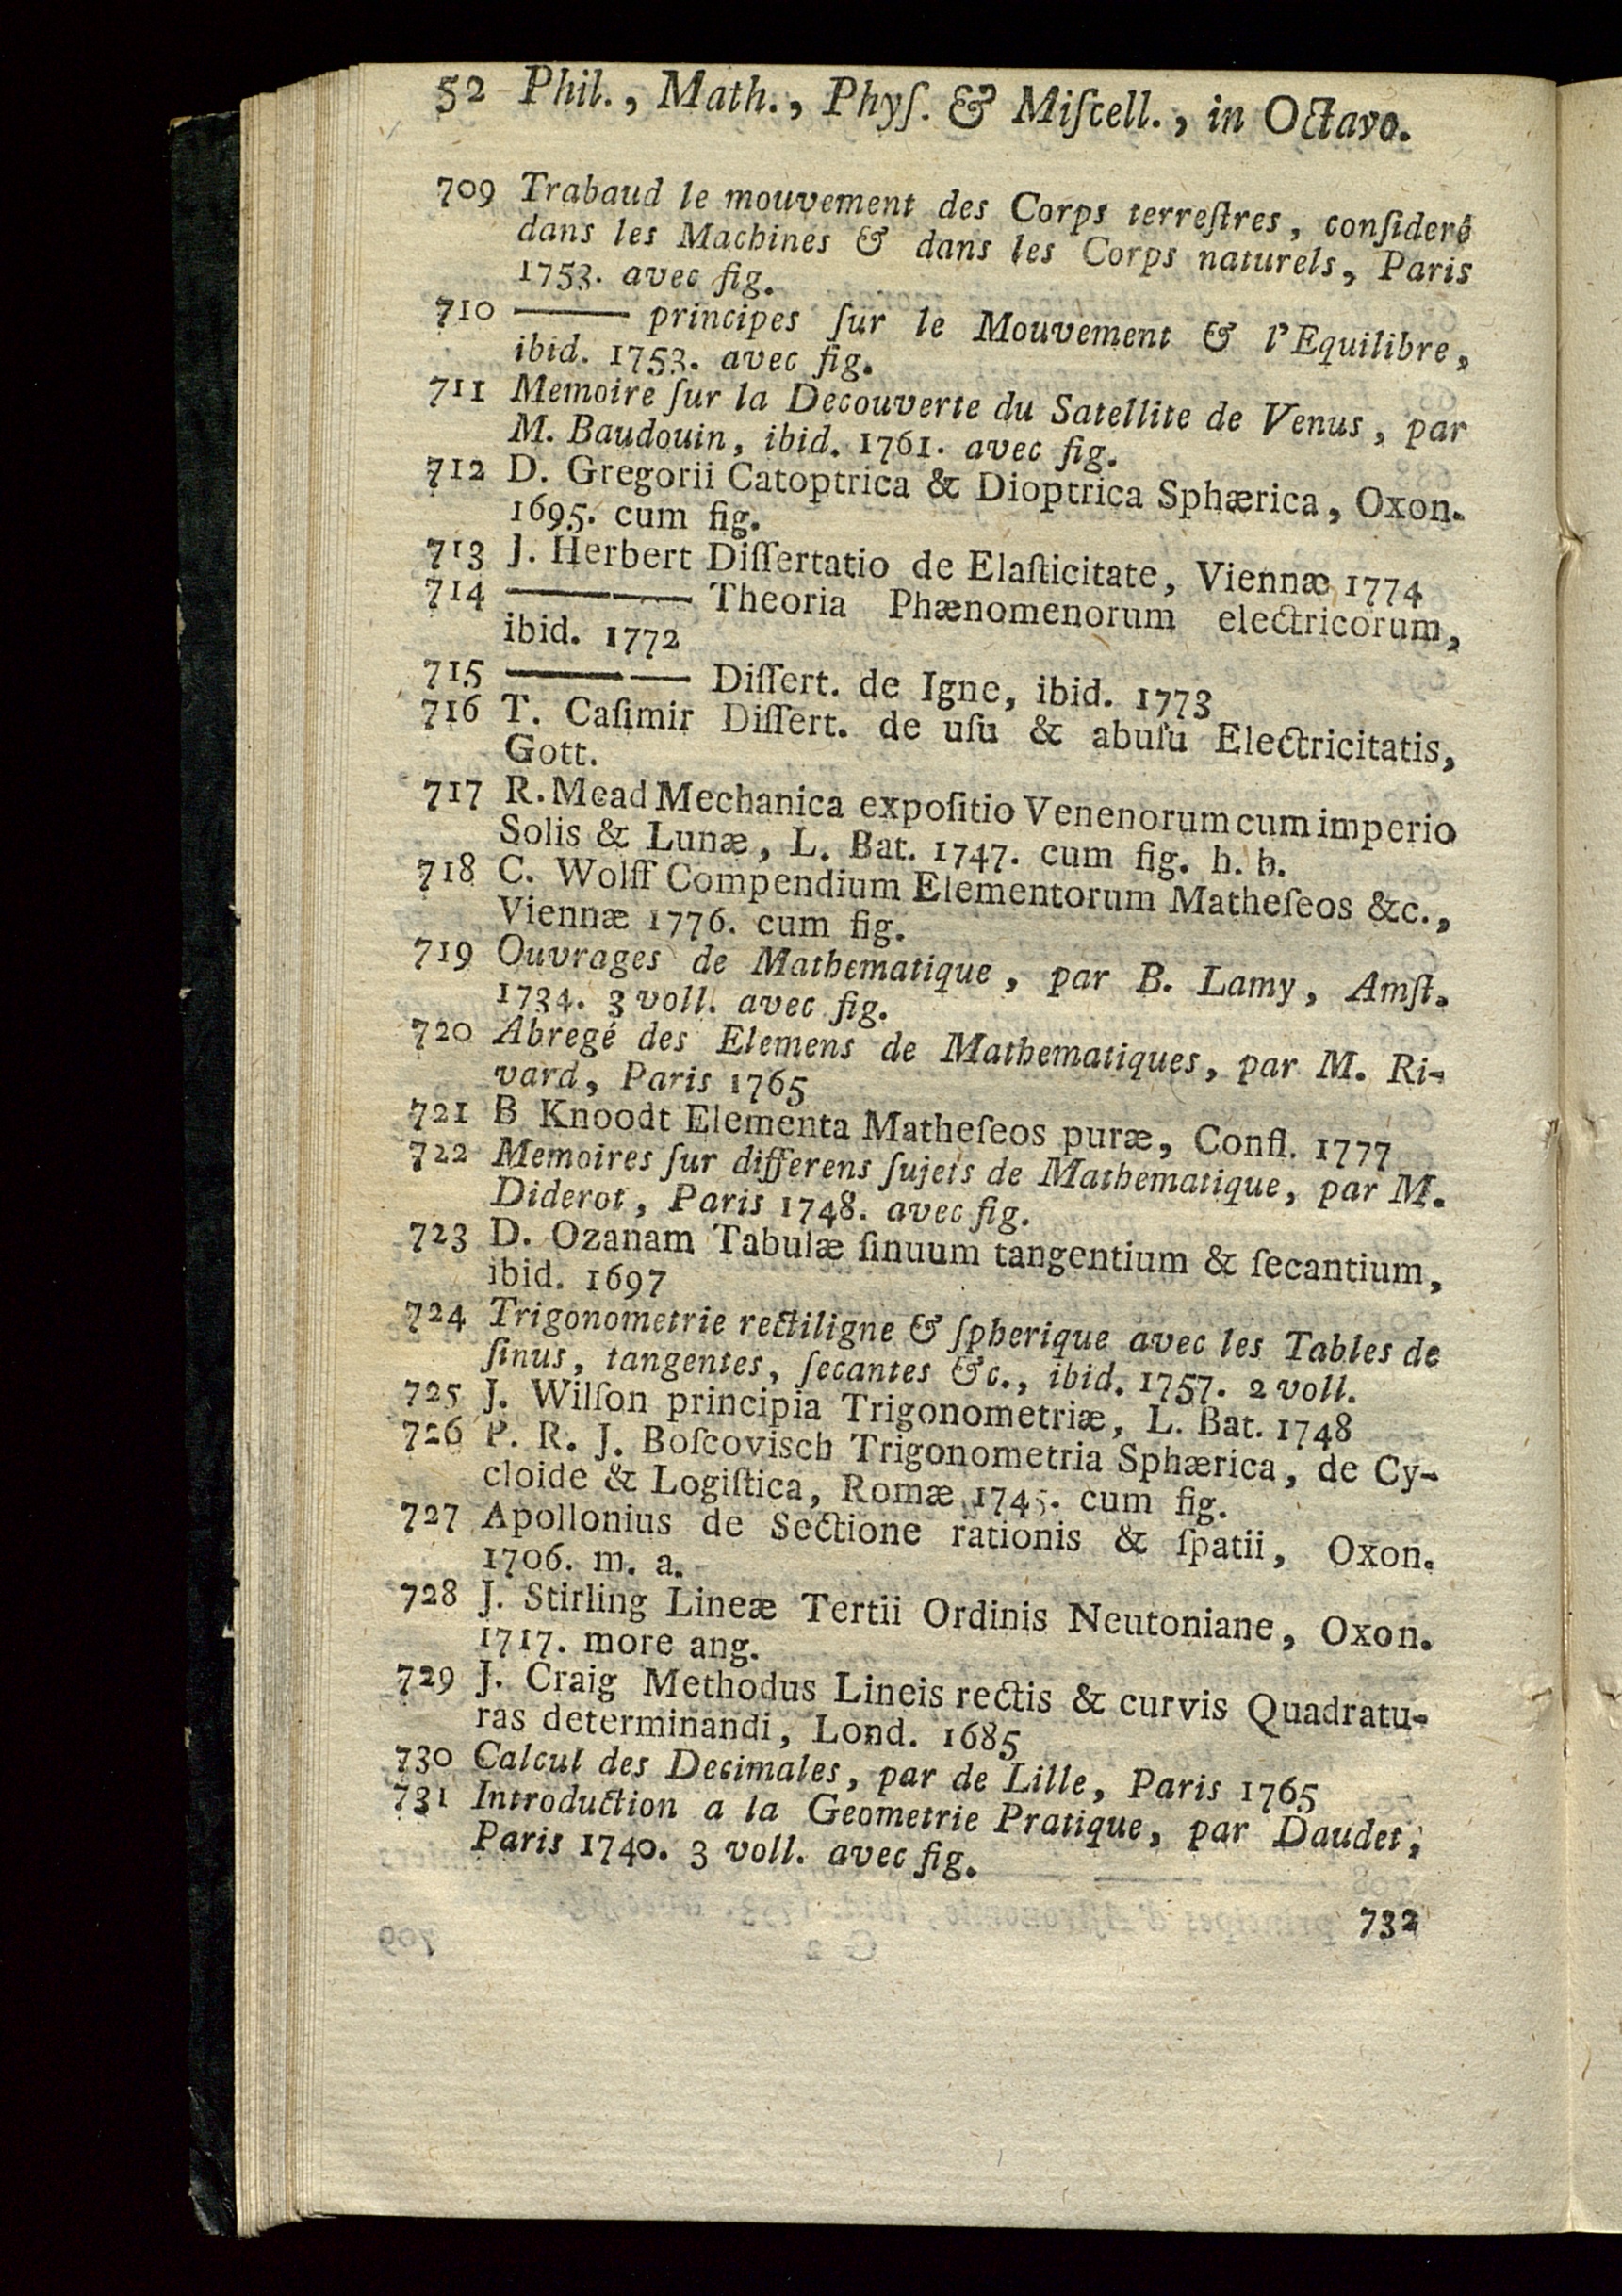 52 Phil., Math., Phyſ. & Miſcell., in Octavo.
709 Trabaud le mouvement des Corps terreſtres, conſideré
dans les Machines & dans les Corps naturels, Paris
1753. avec fig.
710 ——— principes ſur le Mouvement & l'Equilibre,
ibid. 1753. avec fig.
711 Memoire ſur la Decouverte du Satellite de Venus, par
M. Baudouin, ibid. 1761. avec fig.
712 D. Gregorii Catoptrica & Dioptrica Sphærica, Oxon.
1695. cum fig.
713 J. Herbert Diſſertatio de Elaſticitate, Viennæ 1774
714 ——— — Theoria Phænomenorum electricorum,
ibid. 1772
715 ——— — Diſſert. de Igne, ibid. 1773
716 T. Caſimir Diſſert. de uſu & abuſu Electricitatis,
Gott.
717 R. Mead Mechanica expoſitio Venenorum cum imperio
Solis & Lunæ, L. Bat. 1747. cum fig. h. b.
718 C. Wolff Compendium Elementorum Matheſeos &c.,
Viennæ 1776. cum fig.
719 Ouvrages de Mathematique, par B. Lamy, Amſt.
1734. 3 voll. avec fig.
720 Abregé des Elemens de Mathematiques, par M. Ri-
vard, Paris 1765
721 B Knoodt Elementa Matheſeos puræ, Confl. 1777
722 Memoires ſur differens ſujets de Mathematique, par M.
Diderot, Paris 1748. avec fig.
723 D. Ozanam Tabulæ ſinuum tangentium & ſecantium,
ibid. 1697
724 Trigonometrie rectiligne & ſpherique avec les Tables de
ſinus, tangentes, ſecantes &c., ibid. 1757. 2 voll.
725 J. Wilſon principia Trigonometriæ, L. Bat. 1748
726 P. R. J. Boſcovisch Trigonometria Sphærica, de Cy-
cloide & Logiſtica, Romæ 1745. cum fig.
727 Apollonius de Sectione rationis & ſpatii, Oxon.
1706. m. a.
728 J. Stirling Lineæ Tertii Ordinis Neutoniane, Oxon.
1717. more ang.
729 J. Craig Methodus Lineis rectis & curvis Quadratu-
ras determinandi, Lond. 1685
730 Calcul des Decimales, par de Lille, Paris 1765
731 Introduction a la Geometrie Pratique, par Daudet,
Paris 1740. 3 voll. avec fig.
732